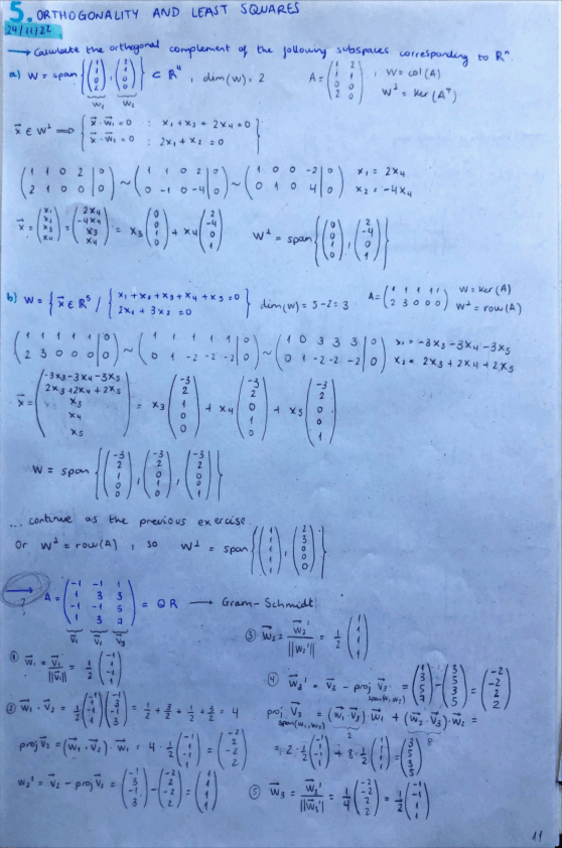 5. ORTHOGONALITY AND LEAST SQUARES
24/11/22
→ Calculate the orthogonal complement of the following subspaces corresponding to Rⁿ.
a) W = span{(1 1 0 2), (2 1 0 0)} ⊂ R⁴, dim(W) = 2 A = (1 2; 1 1; 0 0; 2 0), W = col(A)
w₁ w₂ W⊥ = ker(Aᵀ)
x⃗ ∈ W⊥ ⟹ { x⃗ · w⃗₁ = 0 : x₁ + x₂ + 2x₄ = 0
x⃗ · w⃗₂ = 0 : 2x₁ + x₂ = 0 }
(1 1 0 2 | 0; 2 1 0 0 | 0) ~ (1 1 0 2 | 0; 0 -1 0 -4 | 0) ~ (1 0 0 -2 | 0; 0 1 0 4 | 0) x₁ = 2x₄
x₂ = -4x₄
x⃗ = (x₁ x₂ x₃ x₄) = (2x₄ -4x₄ x₃ x₄) = x₃ (0 0 1 0) + x₄ (2 -4 0 1) W⊥ = span{(0 0 1 0), (2 -4 0 1)}
b) W = { x⃗ ∈ R⁵ / { x₁ + x₂ + x₃ + x₄ + x₅ = 0 A = (1 1 1 1 1; 2 3 0 0 0) W = ker(A)
2x₁ + 3x₂ = 0 } dim(W) = 5-2 = 3 W⊥ = row(A)
(1 1 1 1 1 | 0; 2 3 0 0 0 | 0) ~ (1 1 1 1 1 | 0; 0 1 -2 -2 -2 | 0) ~ (1 0 3 3 3 | 0; 0 1 -2 -2 -2 | 0) x₁ = -3x₃ -3x₄ -3x₅
x₂ = 2x₃ + 2x₄ + 2x₅
x⃗ = (-3x₃ -3x₄ -3x₅; 2x₃ + 2x₄ + 2x₅; x₃; x₄; x₅) = x₃ (-3 2 1 0 0) + x₄ (-3 2 0 1 0) + x₅ (-3 2 0 0 1)
W = span{(-3 2 1 0 0), (-3 2 0 1 0), (-3 2 0 0 1)}
... continue as the previous exercise.
Or W⊥ = row(A), so W⊥ = span{(1 1 1 1 1), (2 3 0 0 0)}
→ ? A = (-1 -1 1; 1 3 3; -1 -1 5; 1 3 7) = QR → Gram-Schmidt
v⃗₁ v⃗₂ v⃗₃
① w⃗₁ = v⃗₁/||v⃗₁|| = 1/2 (-1 1 -1 1)
② w⃗₁ · v⃗₂ = 1/2 (-1 1 -1 1)(-1 3 -1 3) = 1/2 + 3/2 + 1/2 + 3/2 = 4
proj v⃗₂ = (w⃗₁ · v⃗₂) · w⃗₁ = 4 · 1/2 (-1 1 -1 1) = (-2 2 -2 2)
w⃗₂' = v⃗₂ - proj v⃗₂ = (-1 3 -1 3) - (-2 2 -2 2) = (1 1 1 1)
③ w⃗₂ = w⃗₂'/||w⃗₂'|| = 1/2 (1 1 1 1)
④ w⃗₃' = v⃗₃ - proj v⃗₃ = (1 3 5 7) - (3 5 3 5) = (-2 -2 2 2)
span(w₁,w₂)
proj v⃗₃ = (w⃗₁ · v⃗₃) · w⃗₁ + (w⃗₂ · v⃗₃) · w⃗₂ =
span(w₁,w₂) 2 8
= 2 · 1/2 (-1 1 -1 1) + 8 · 1/2 (1 1 1 1) = (3 5 3 5)
⑤ w⃗₃ = w⃗₃'/||w⃗₃'|| = 1/4 (-2 -2 2 2) = 1/2 (-1 -1 1 1)
11